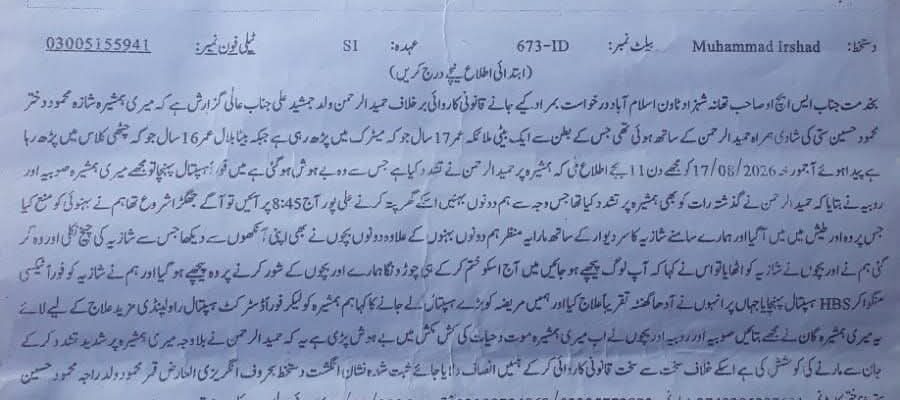 دستخط: Muhammad irshad بیلٹ نمبر: 673-ID عہدہ: SI ٹیلی فون نمبر: 03005155941
(ابتدائی اطلاع نیچے درج کریں)
بخدمت جناب ایس ایچ او صاحب تھانہ شہزاد ٹاون اسلام آباد درخواست بمراد کیے جانے قانونی کاروائی برخلاف حمید الرحمن ولد جمشید علی جناب عالی گزارش ہے کہ میری ہمشیرہ شازہ محمود دختر
محمود حسین ستی کی شادی ہمراہ حمید الرحمن کے ساتھ ہوئی تھی جس کے بطن سے ایک بیٹی ملائکہ عمر 17 سال جو کہ میٹرک میں پڑھ رہی ہے جبکہ بیٹا بلال عمر 16 سال جو کہ چھٹی کلاس میں پڑھ رہا
ہے پیدا ہوئے آج مورخہ 17/08/2026 کو مجھے دن 11 بجے اطلاع ملی کہ ہمشیرہ پر حمید الرحمن نے تشدد کیا ہے جس سے وہ بے ہوش ہو گئی ہے میں فوراً ہسپتال پہنچا تو مجھے میری ہمشیرہ صوبیہ اور
روبیہ نے بتایا کہ حمید الرحمن نے گذشتہ رات کو بھی ہمشیرہ پر تشدد کیا تھا جس وجہ سے ہم دونوں بہنیں اسکے گھر پتہ کرنے علی پور آج 8:45 پر آئیں تو آگے جھگڑا شروع تھا ہم نے بہنوئی کو منع کیا
جس پر وہ اور طیش میں آ گیا اور ہمارے سامنے شازیہ کا سر دیوار کے ساتھ مارا یہ منظر ہم دونوں بہنوں کے علاوہ دونوں بچوں نے بھی اپنی آنکھوں سے دیکھا جس سے شازیہ کی چیخ نکلی اور وہ گر
گئی ہم نے اور بچوں نے شازیہ کو اٹھایا تو اس نے کہا کہ آپ لوگ پیچھے ہو جائیں میں آج اسکو ختم کر کے ہی چھوڑونگا ہمارے اور بچوں کے شور کرنے پر وہ پیچھے ہو گیا اور ہم نے شازیہ کو فوراً ٹیکسی
منگوا کر HBS ہسپتال پہنچایا جہاں پر انہوں نے آدھا گھنٹہ تقریباً علاج کیا اور ہمیں مریضہ کو بڑے ہسپتال لے جانے کا کہا ہم ہمشیرہ کو لیکر فوراً ڈسٹرکٹ ہسپتال راولپنڈی مزید علاج کے لیے لائے
یہ میری ہمشیرگان نے مجھے بتائیں صوبیہ اور روبیہ اور بچوں نے اب میری ہمشیرہ موت و حیات کی کش مکش میں بے ہوش پڑی ہے یہ کہ حمید الرحمن نے بلا وجہ میری ہمشیرہ پر شدید تشدد کر کے
جان سے مارنے کی کوشش کی ہے اسکے خلاف سخت سے سخت قانونی کاروائی کر کے ہمیں انصاف دلایا جائے ثبت شدہ نشان انگشت دستخط بحروف انگریزی العارض قمر محمود ولد راجہ محمود حسین